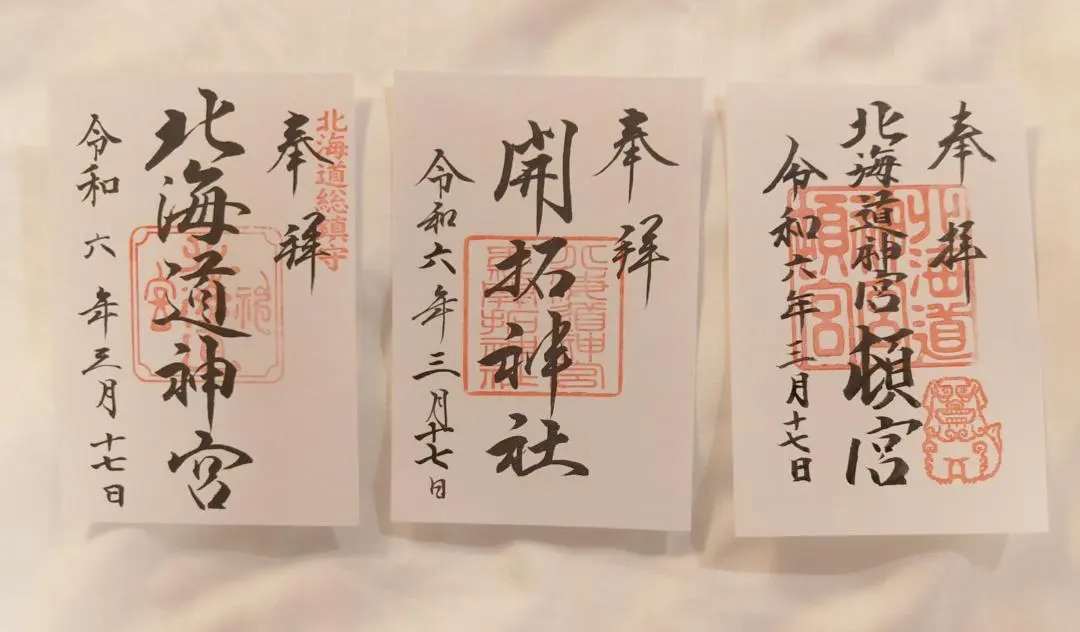 北海道総鎮守
奉拝
北海道神宮
令和六年三月十七日
奉拝
開拓神社
令和六年三月十七日
奉拝
北海道神宮頓宮
北海道
頓宮
令和六年三月十七日